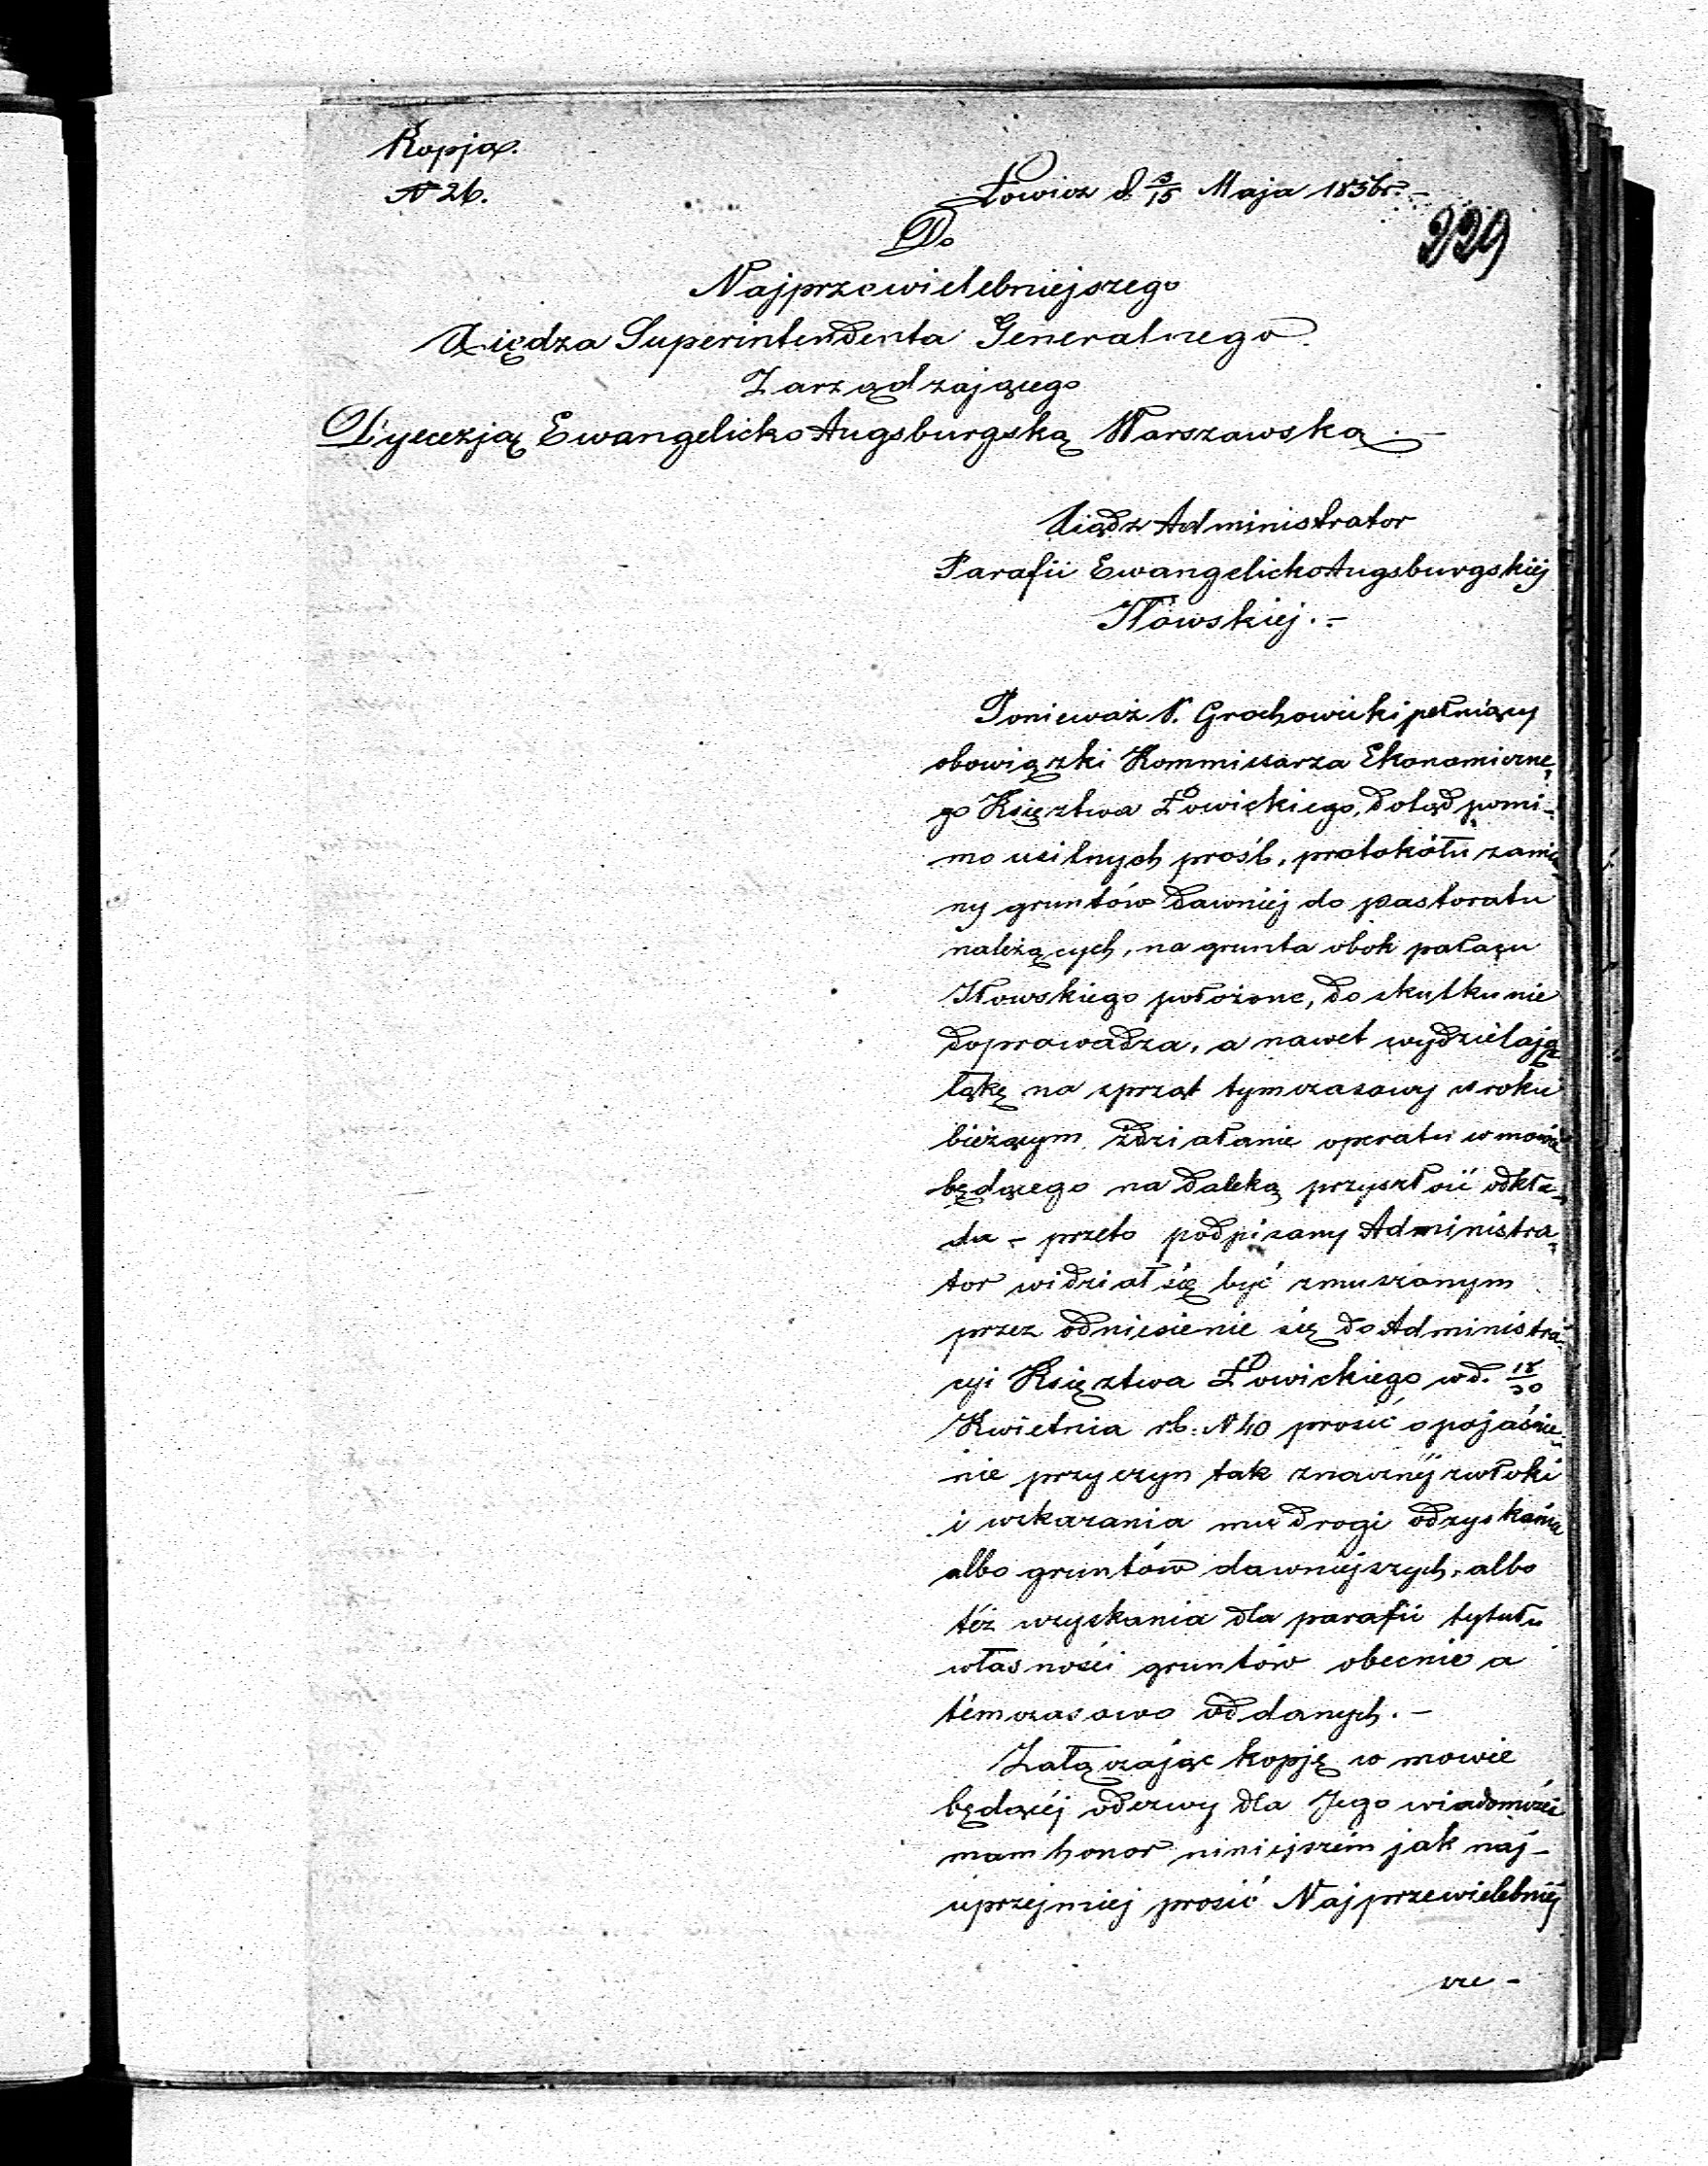 Kopja.
N 26.
Łowicz d. 3/15 Maja 1856 r. –
229
Do
Najprzewielebniejszego
Xiędza Superintendenta Generalnego
Zarządzającego
Dyecezją Ewangelicko Augsburgską Warszawską. –
Xiądz Administrator
Parafii Ewangelicko Augsburgskiej
Iłowskiej. –
Ponieważ P. Grochowicki pełniący
obowiązki Kommissarza Ekonomiczne-
go Księztwa Łowickiego, dotąd pomi-
mo usilnych prośb, protokółu zamia-
ny gruntów dawniej do pastoratu
należących, na grunta obok pałacu
Iłowskiego położone, do skutku nie
doprowadza, a nawet wydzielając
łąkę na sprzęt tymczasowy w roku
bieżącym zdziałanie operatu w mowie
będącego na daleką przyszłość odkła-
da – przeto podpisany Administra-
tor widział się być zmuszonym
przez odniesienie się do Administra-
cyi Księztwa Łowickiego w d. 18/30
Kwietnia r.b. N 40 prosić o pojaśnie-
nie przyczyn tak znacznéj zwłoki
i wskazania mu drogi odzyskania
albo gruntów dawniejszych, albo
téż uzyskania dla parafii tytułu
własności gruntów obecnie a
témczasowo oddanych. –
Załączając kopję w mowie
będącéj odezwy dla Jego wiadomości
mam honor niniejszém jak naj-
uprzejmiej prosić Najprzewielebniej
sze –